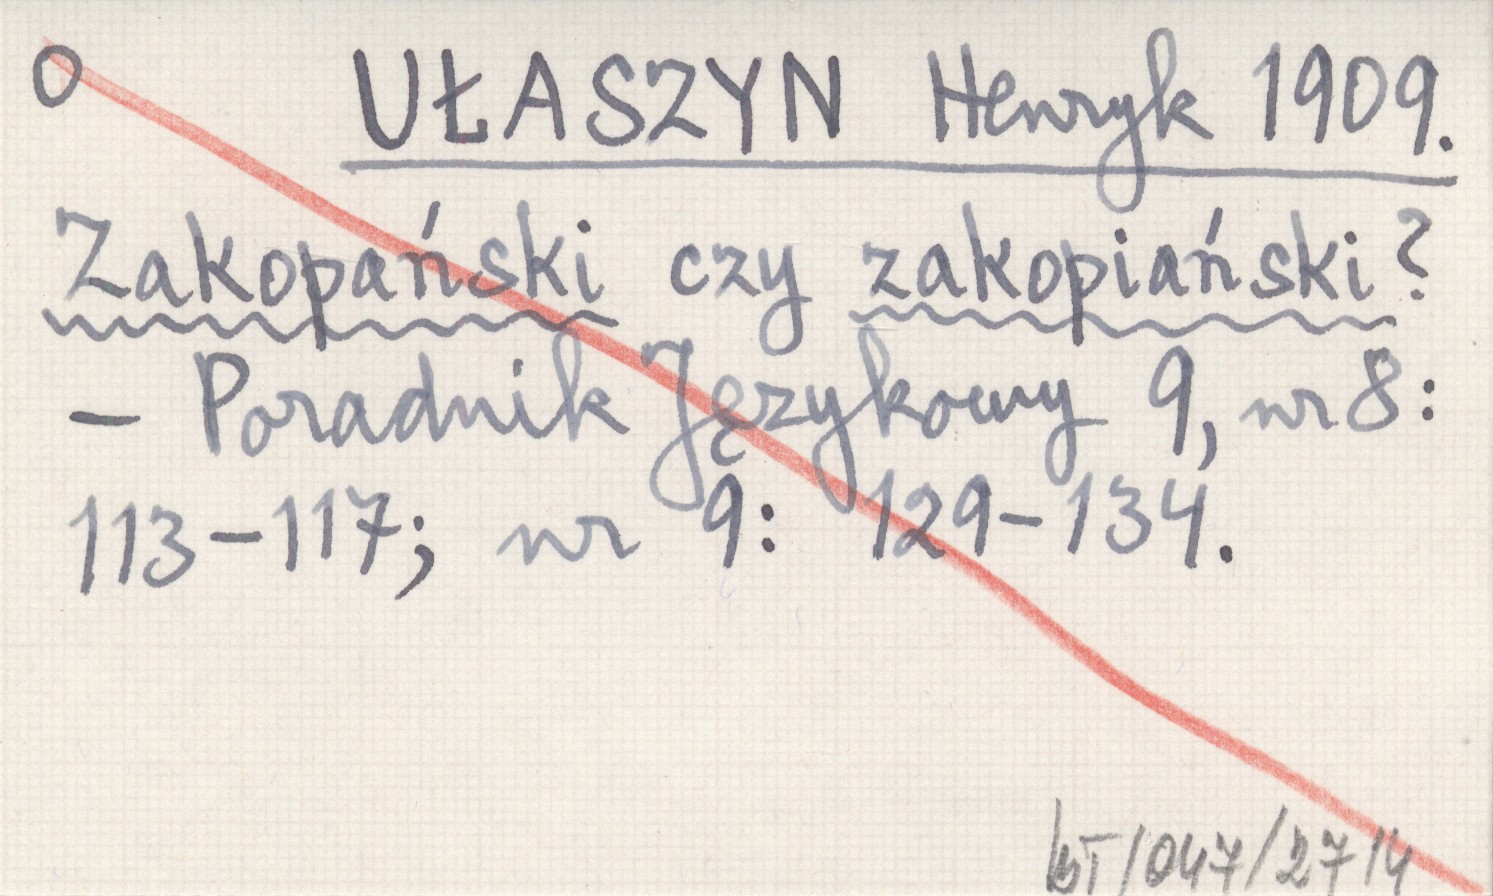 O UŁASZYN Henryk 1909.
Zakopański czy zakopiański?
– Poradnik Językowy 9, nr 8:
113–117; nr 9: 129–134.